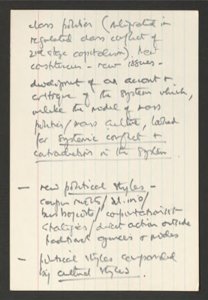 class politics (adjusted in
regulated class conflict of
2nd stage capitalism). New
constituencies - new issues -
development of an account &
critique of the system which,
unlike the model of mass
politics / mass culture, looked
for systemic conflict &
contradiction in the system.
— new political styles -
campus revolts / sit-ins /
boycotts / confrontationist
strategies / direct action outside
traditional agencies & modes
— political styles compounded
by cultural styles.